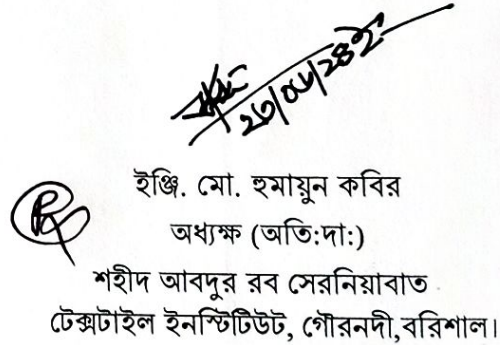 ইঞ্জি. মো. হুমায়ুন কবির
অধ্যক্ষ (অতি:দা:)
শহীদ আবদুর রব সেরনিয়াবাত
টেক্সটাইল ইনস্টিটিউট, গৌরনদী,বরিশাল।